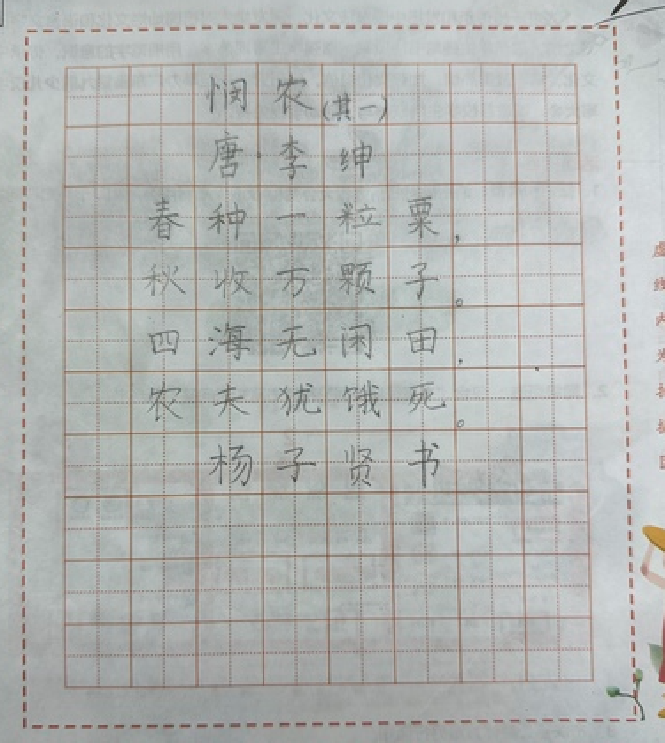 悯农(其一)
唐·李绅
春种一粒粟，
秋收万颗子。
四海无闲田，
农夫犹饿死。
杨子贤书